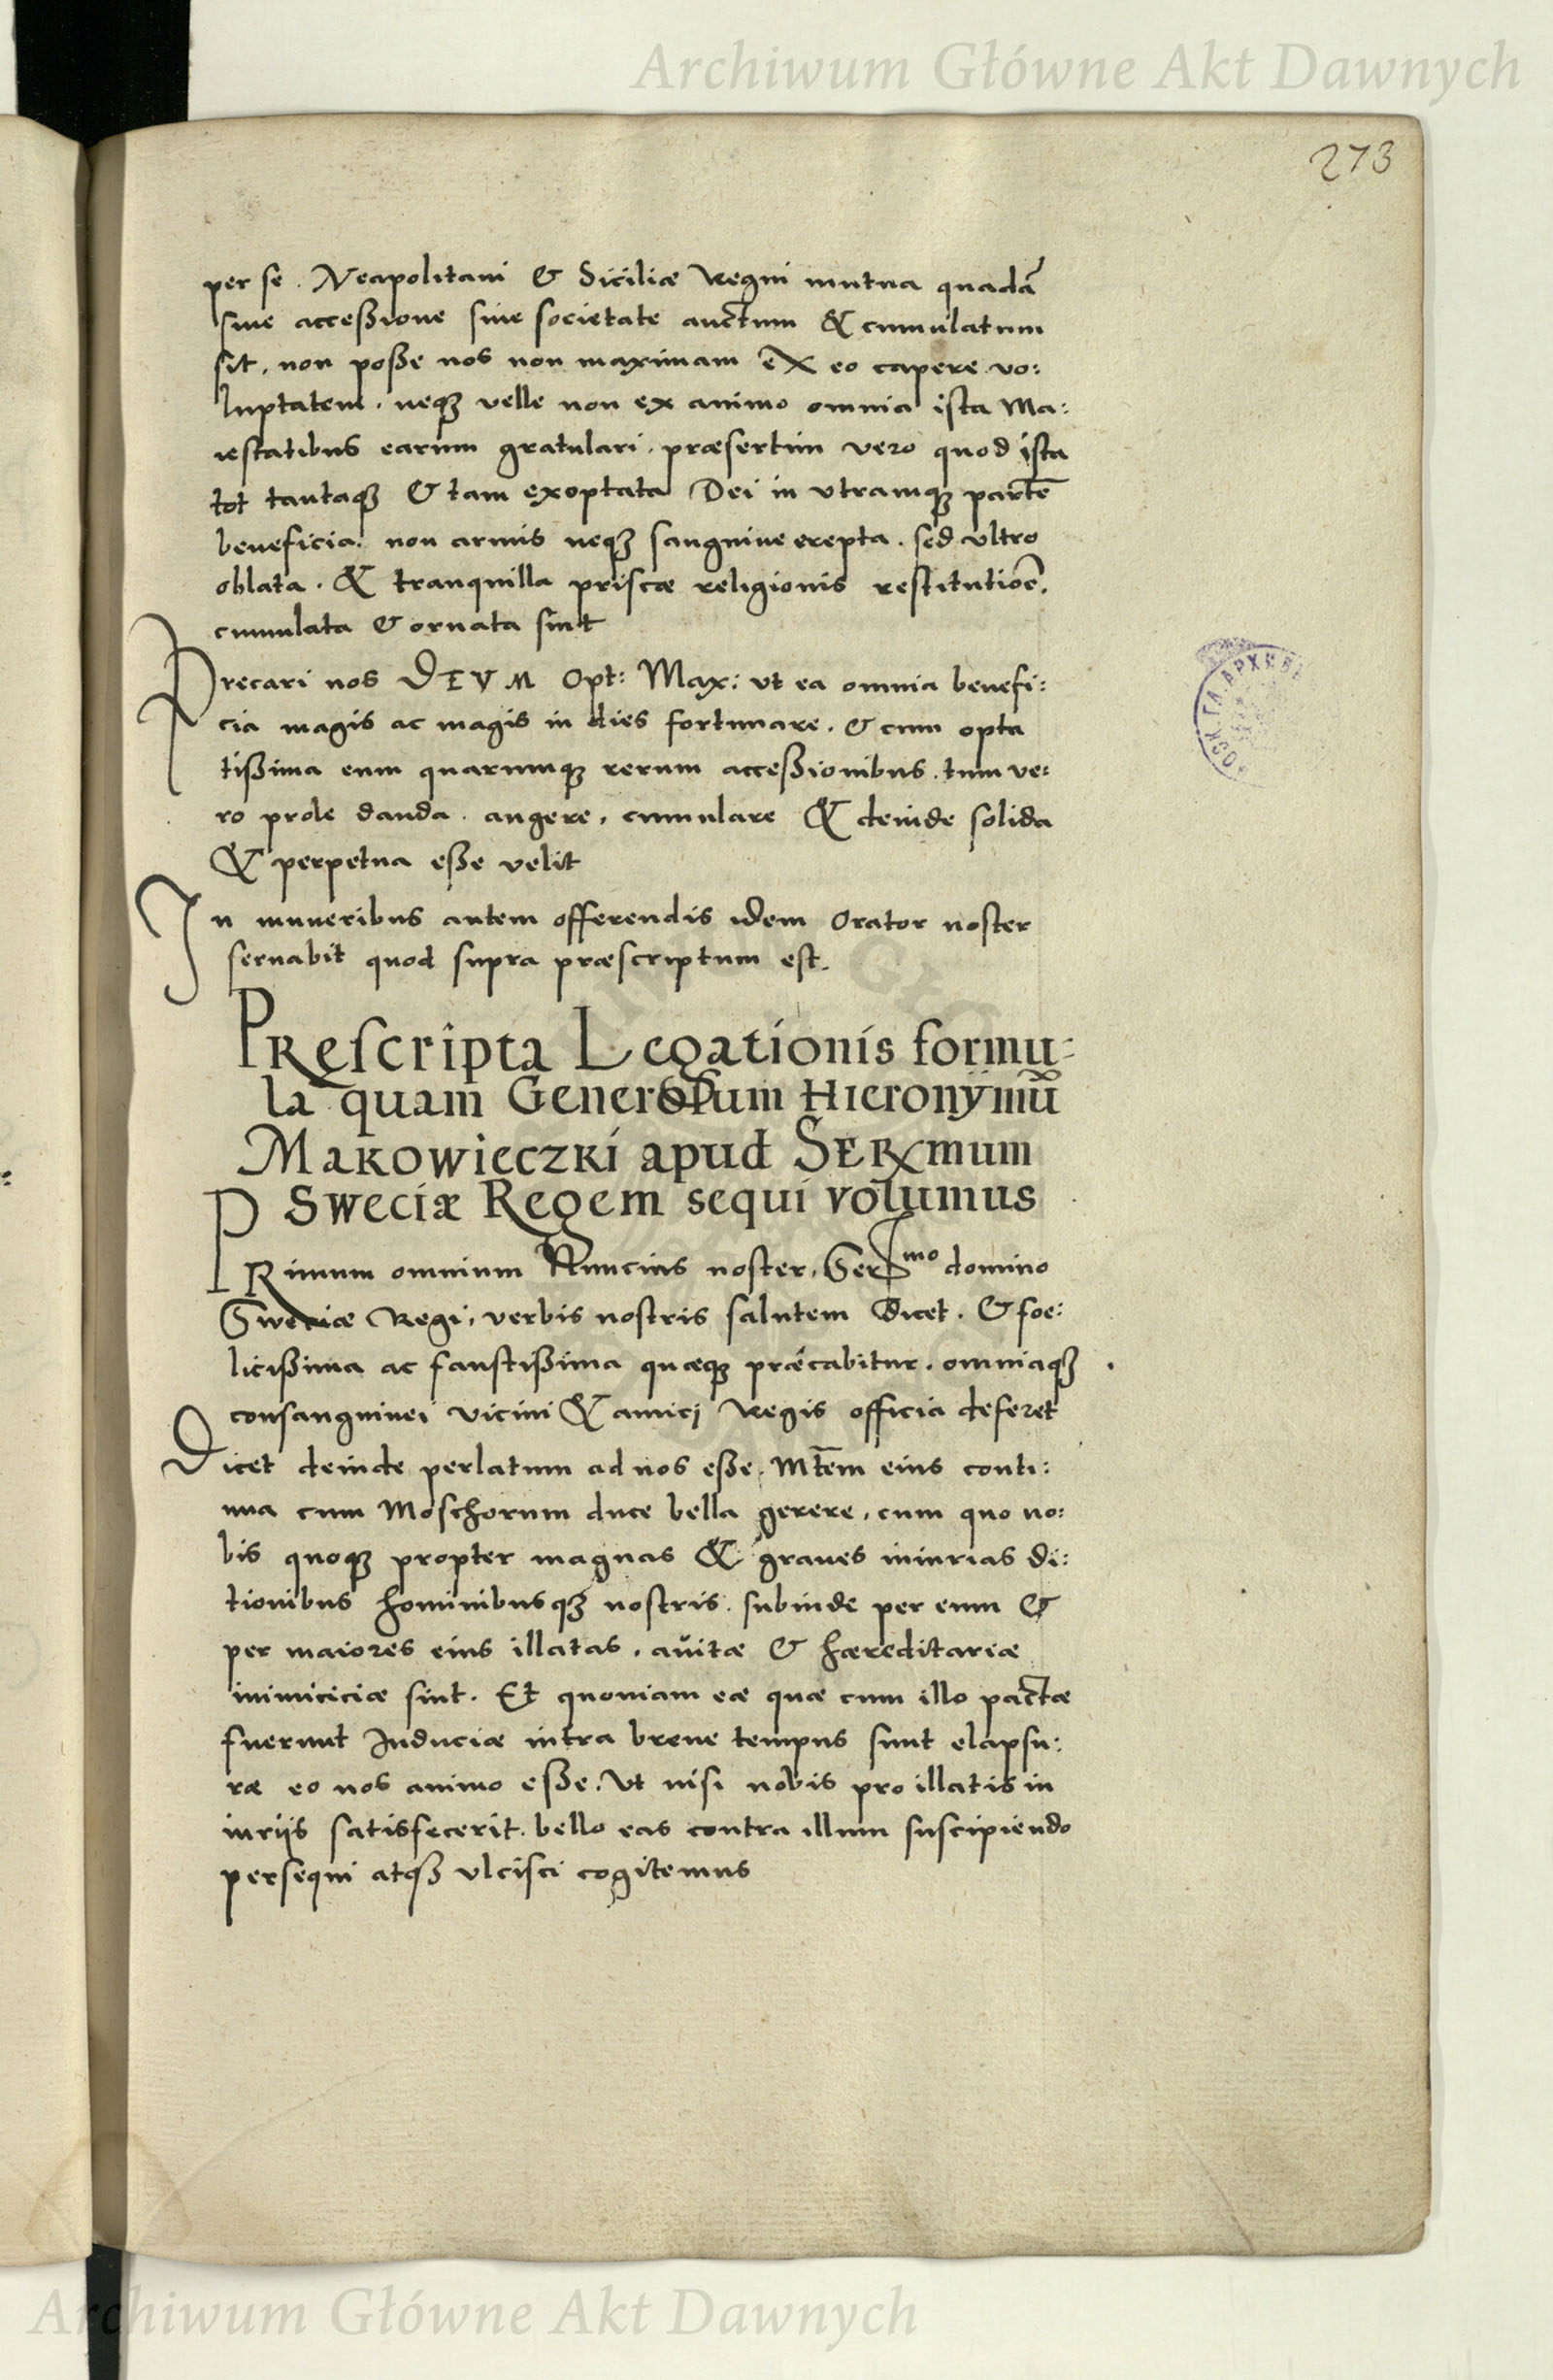 Archiwum Główne Akt Dawnych
273
per se. Neapolitani & Siciliæ Regni mutua quadā
siue acceßione siue societate auctum & cumulatum
sit, non poße nos non maximam ex eo capere vo:
luptatem. neqꝫ velle non ex animo omnia ista Ma:
iestatibus earum gratulari. præsertim vero quod ista
tot tantaqꝫ & tam exoptata Dei in vtramqꝫ partē
beneficia. non armis neqꝫ sanguine erepta. sed vltro
oblata. & tranquilla priscæ religionis restitutiōe.
cumulata & ornata sint
Precari nos DEVM Opt: Max: vt ea omnia benefi:
cia magis ac magis in dies fortunare. & cum opta
tißima eum quarumqꝫ rerum acceßionibus. tum ve:
ro prole danda. augere, cumulare & deinde solida
& perpetua eße velit
In muneribus autem offerendis idem Orator noster
seruabit quod supra præscriptum est.
PRescripta Legationis formu:
la quam Generosum Hieronymū
Makowieczki apud SERmum
Sweciæ Regem sequi volumus
PRimum omnium Nuncius noster, Serᵐᵒ domino
Sweciæ Regi, verbis nostris salutem dicet. & foe:
licißima ac faustißima quæqꝫ præcabitur. omniaqꝫ
consanguinei vicini & amici Regis officia deferet
Dicet deinde perlatum ad nos eße. Mtēm eius conti:
nua cum Moschorum duce bella gerere, cum quo no:
bis quoqꝫ propter magnas & graues iniurias di:
tionibus hominibusqꝫ nostris. subinde per eum &
per maiores eius illatas, auitæ & hæreditariæ
inimiciciæ sint. Et quoniam eæ quæ cum illo pactæ
fuerunt Induciæ intra breue tempus sunt elapsu:
ræ eo nos animo eße. Vt nisi nobis pro illatis in
iuriis satisfecerit. bello eas contra illum suscipiendo
persequi atqꝫ vlcisci cogitemus
Archiwum Główne Akt Dawnych